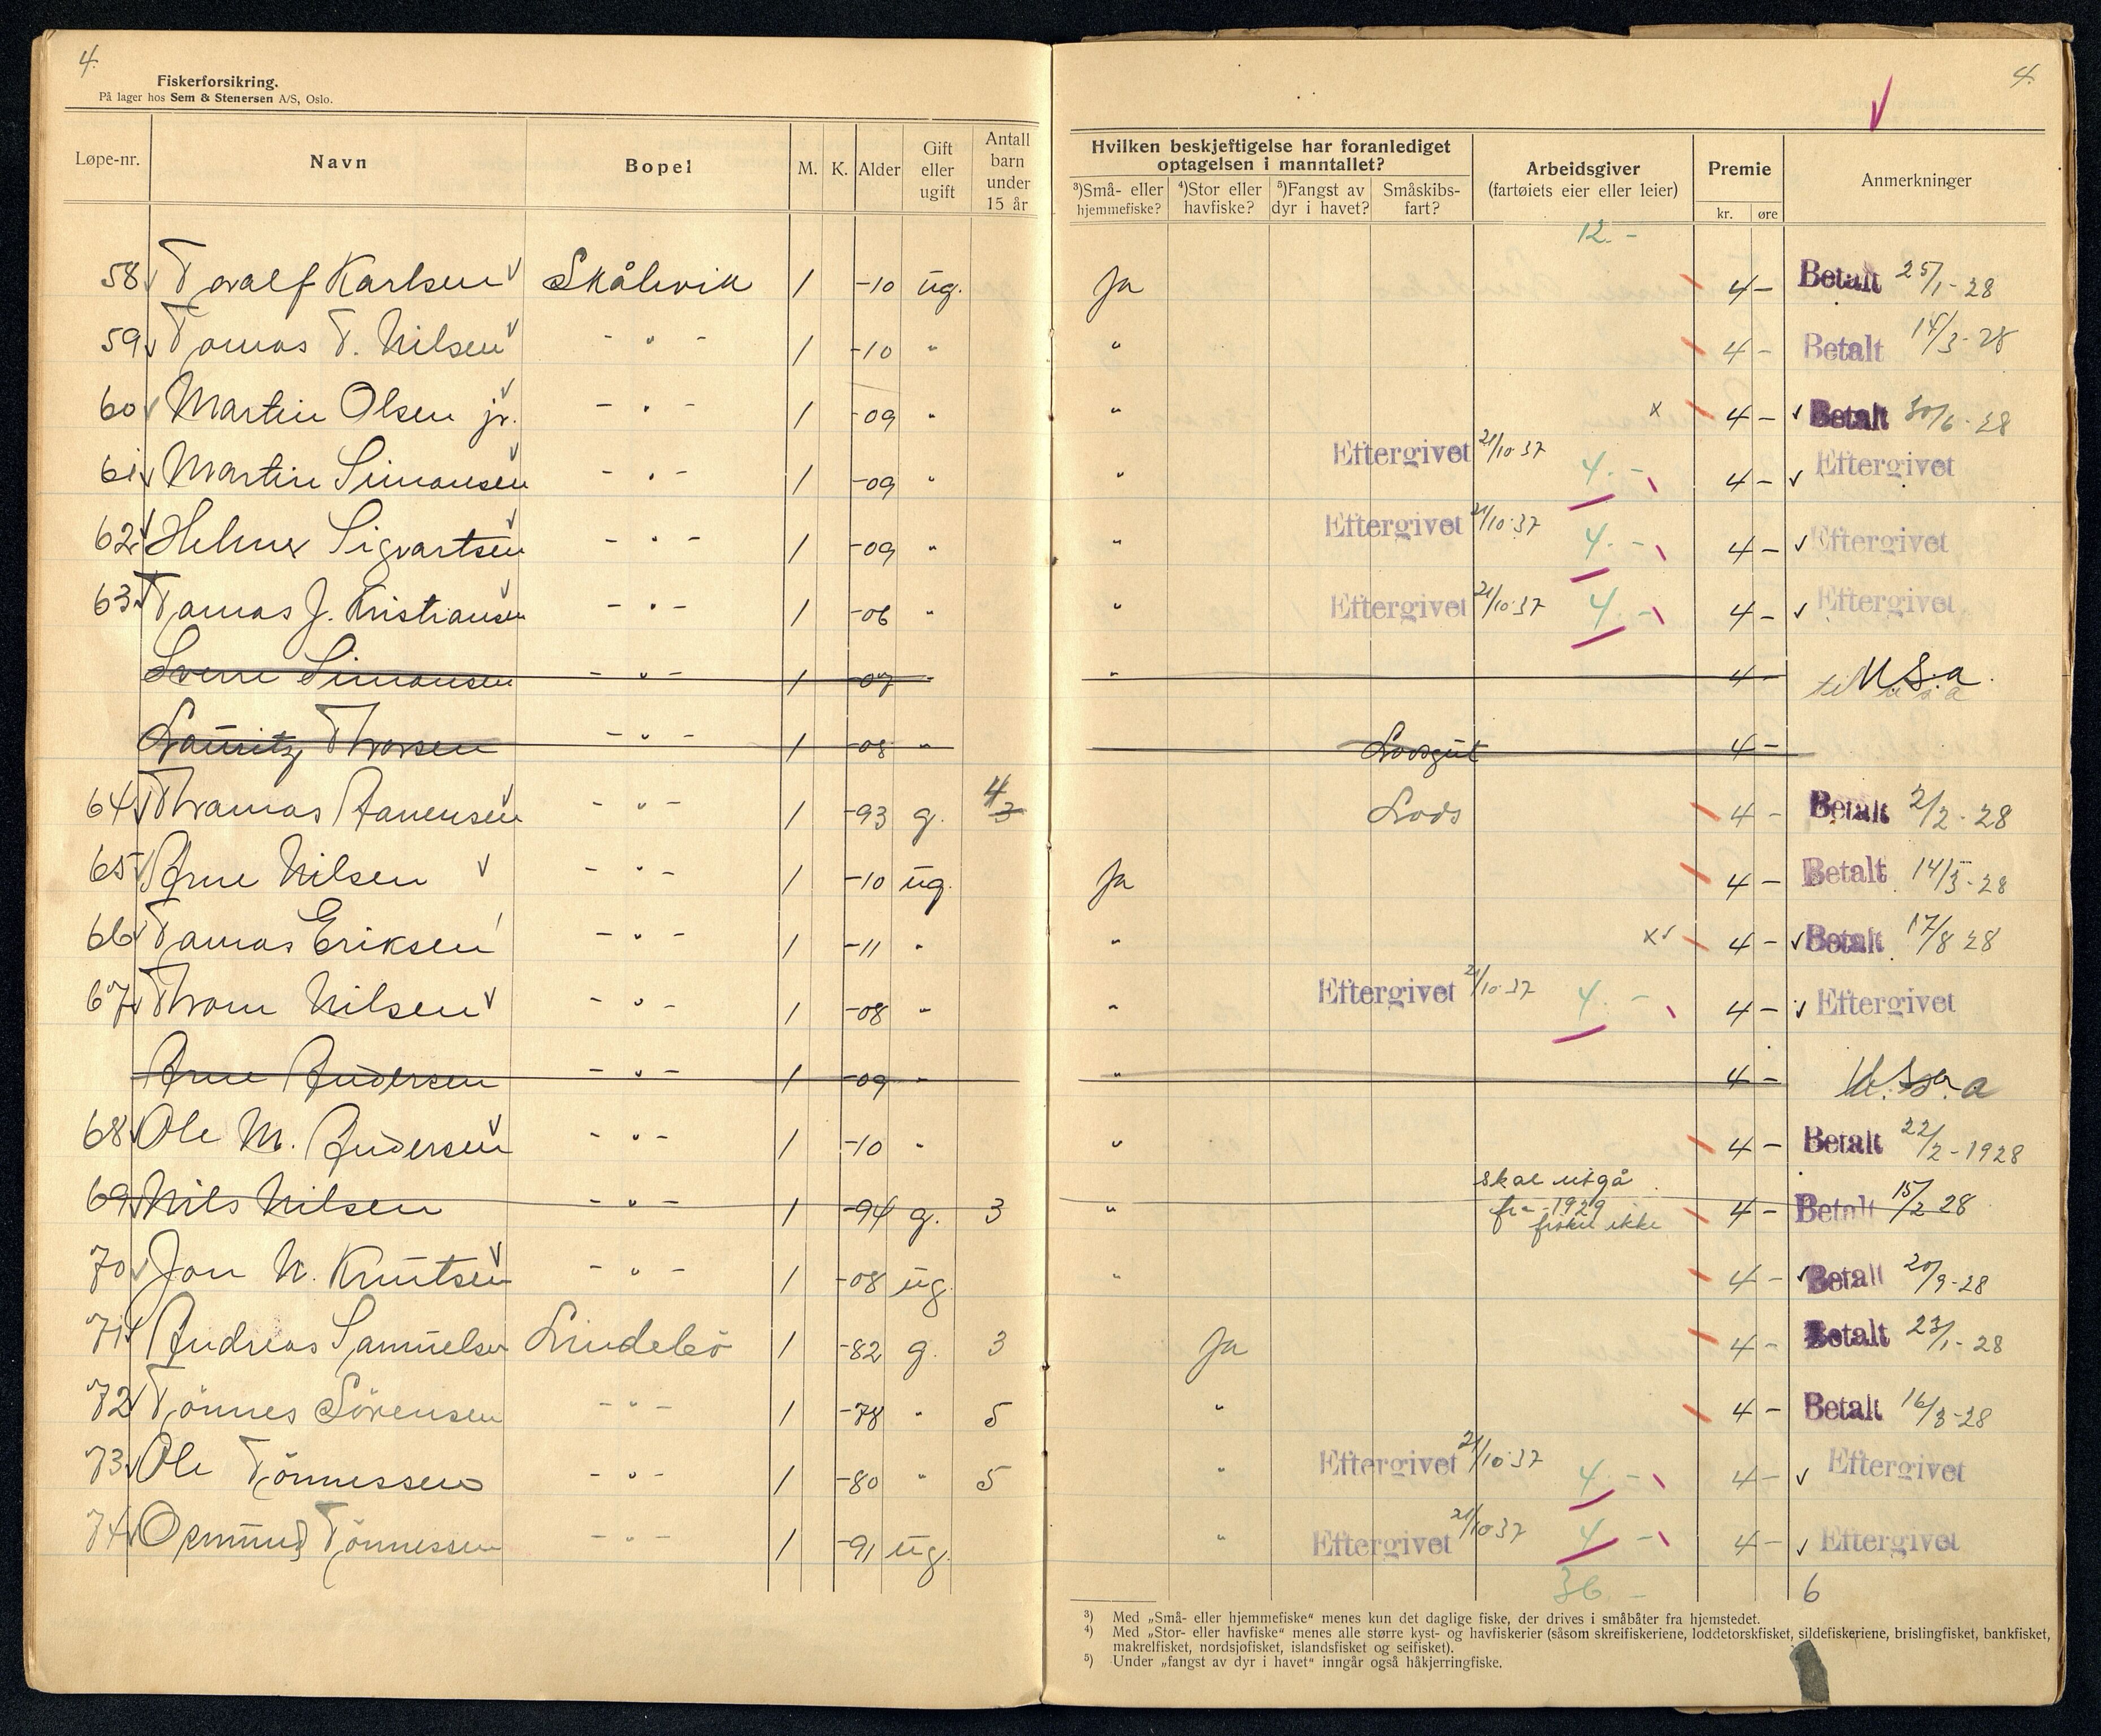 4.
4.
Fiskerforsikring.
På lager hos Sem & Stenersen A/S, Oslo.
Løpe-nr. Navn Bopel M. K. Alder Gift eller ugift Antall barn under 15 år
Hvilken beskjeftigelse har foranlediget optagelsen i manntallet?
³)Små- eller hjemmefiske? ⁴)Stor eller havfiske? ⁵)Fangst av dyr i havet? Småskibs-fart?
Arbeidsgiver (fartøiets eier eller leier) Premie kr. øre Anmerkninger
12.-
58 Toralf Karlsen Skålevik 1 -10 ug. Ja 4 - Betalt 25/1-28
59 Tomas T. Nilsen - " - 1 -10 " " 4 - Betalt 14/3-28
60 Martin Olsen jr. - " - 1 -09 " " x 4 - Betalt 30/6-28
61 Martin Simonsen - " - 1 -09 " " Eftergivet 21/10 37 4.- 4 - Eftergivet
62 Helmer Sigvartsen - " - 1 -09 " " Eftergivet 21/10-37 4.- 4 - Eftergivet
63 Tomas J. Kristiansen - " - 1 -06 " " Eftergivet 21/10-37 4.- 4 - Eftergivet
Sverre Simonsen - " - 1 -07 " " 4 - til U.S.a.
Lauritz Thorsen - " - 1 -08 " Losgut 4 -
64 Thomas Aanensen - " - 1 -93 g. 3 4 Lods 4 - Betalt 2/2-28
65 Arne Nilsen - " - 1 -10 ug. Ja 4 - Betalt 14/3-28
66 Tomas Eriksen - " - 1 -11 " " x 4 - Betalt 17/8 28
67 Thom Nilsen - " - 1 -08 " " Eftergivet 21/10-37 4.- 4 - Eftergivet
Arne Andersen - " - 1 -09 " " 4 - U.S.a
68 Ole M. Andersen - " - 1 -10 " " 4 - Betalt 22/2-1928
69 Nils Nilsen - " - 1 -94 g. 3 " skal utgå fra 1929 fisker ikke 4 - Betalt 15/2 28
70 Jon N. Knutsen - " - 1 -08 ug. " 4 - Betalt 20/9-28
71 Andreas Samuelsen Lindebö 1 -82 g. 3 Ja 4 - Betalt 23/1-28
72 Tönnes Sörensen - " - 1 -78 " 5 " 4 - Betalt 16/3-28
73 Ole Tönnessen - " - 1 -80 " 5 " Eftergivet 21/10-37 4.- 4 - Eftergivet
74 Tönnessen - " - 1 -91 ug. " Eftergivet 21/10 37 4 - 4 - Eftergivet
36 - 6
³) Med „Små- eller hjemmefiske“ menes kun det daglige fiske, der drives i småbåter fra hjemstedet.
⁴) Med „Stor- eller havfiske“ menes alle større kyst- og havfiskerier (såsom skreifiskeriene, loddetorskfisket, sildefiskeriene, brislingfisket, bankfisket,
makrelfisket, nordsjøfisket, islandsfisket og seifisket).
⁵) Under „fangst av dyr i havet“ inngår også håkjerringfiske.